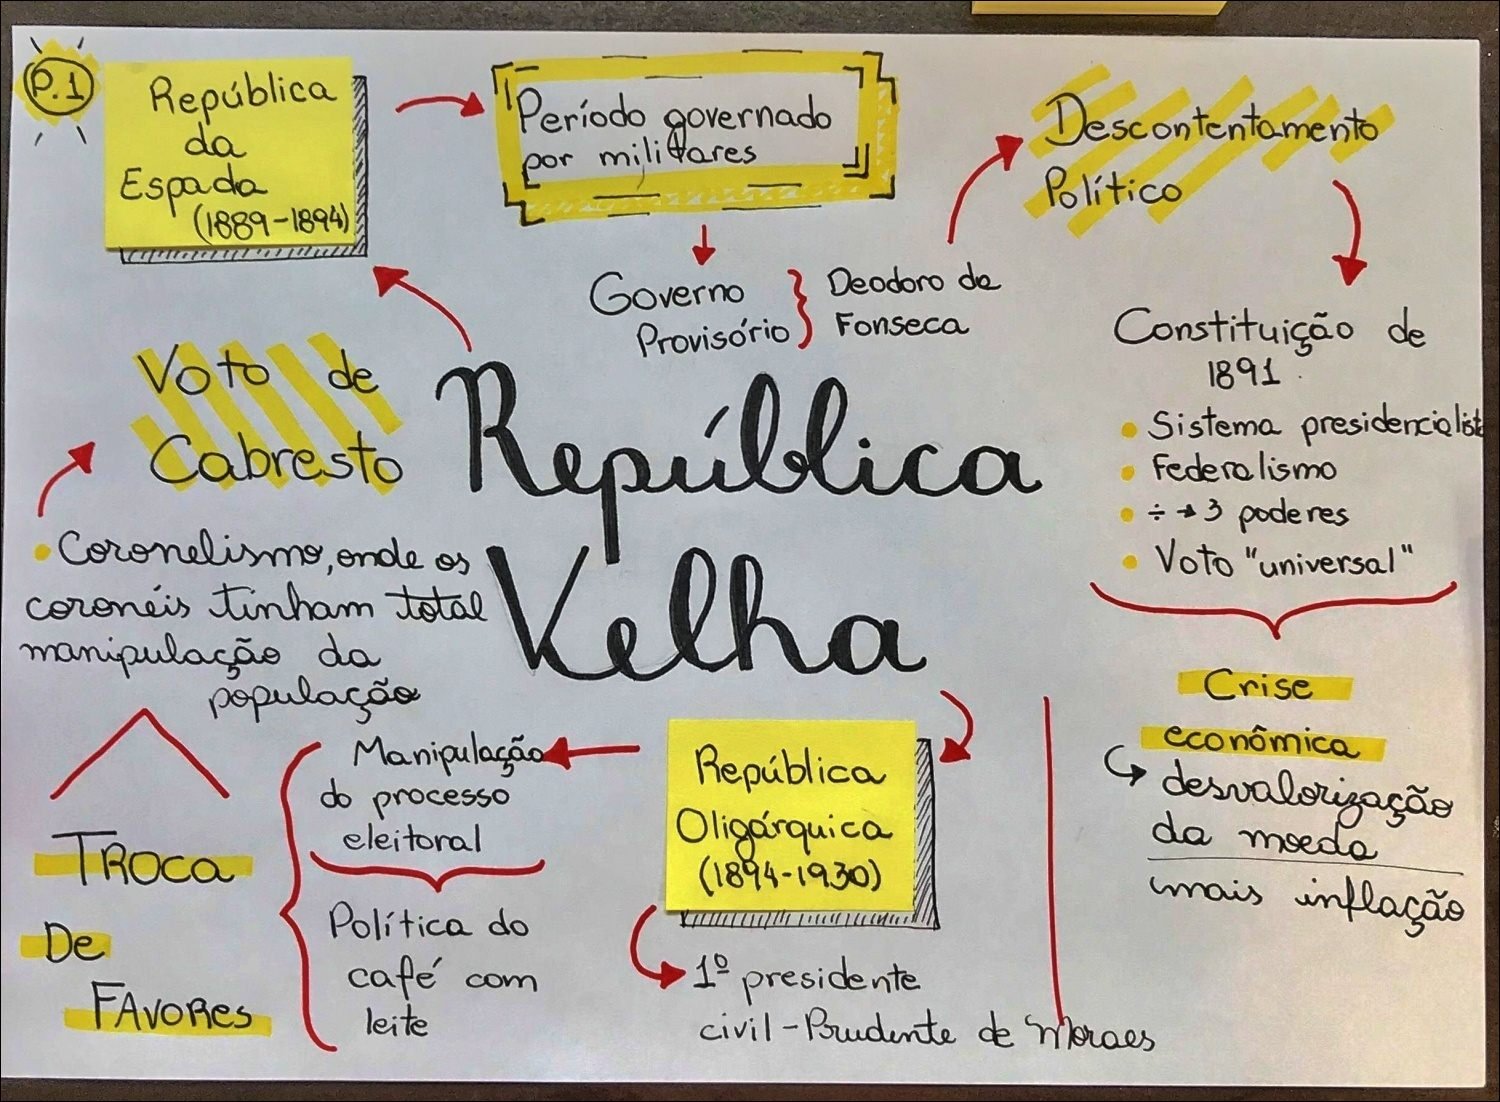 P.1
República
da
Espada
(1889-1894)
Período governado
por militares
Governo
Provisório
Deodoro da
Fonseca
Descontentamento
Político
Constituição de
1891
• Sistema presidencialist
• Federalismo
• ÷ → 3 poderes
• Voto "universal"
Crise
econômica
desvalorização
da moeda
mais inflação
República
Velha
República
Oligárquica
(1894-1930)
1º presidente
civil - Prudente de Moraes
Manipulação
do processo
eleitoral
Política do
café com
leite
Voto de
Cabresto
• Coronelismo, onde os
coronéis tinham total
manipulação da
população
TROCA
De
FAVORes